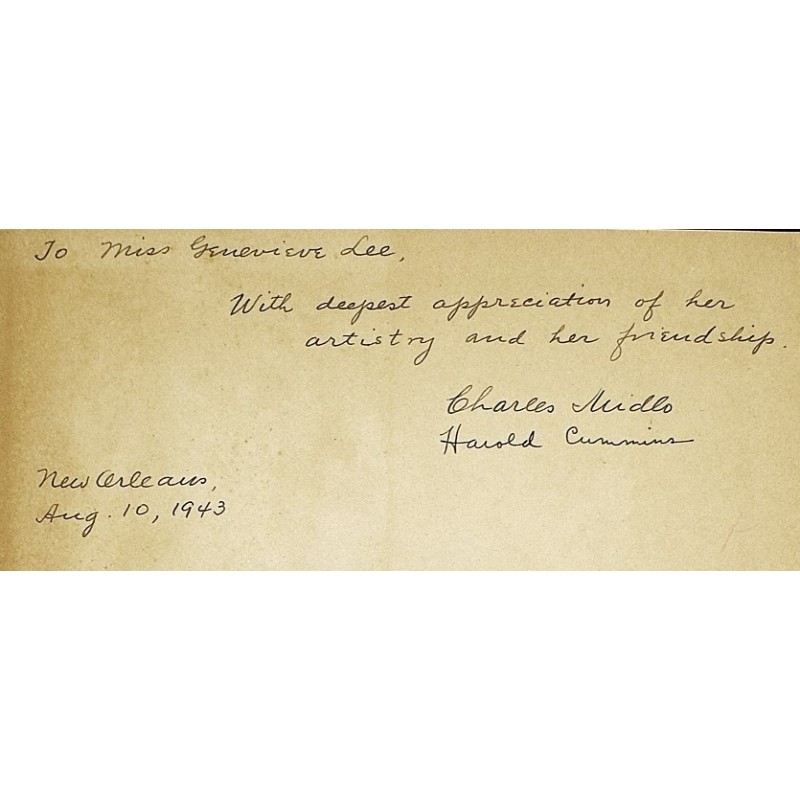 To Miss Genevieve Lee,
With deepest appreciation of her
artistry and her friendship.
Charles Midlo
Harold Cummins
New Orleans,
Aug. 10, 1943